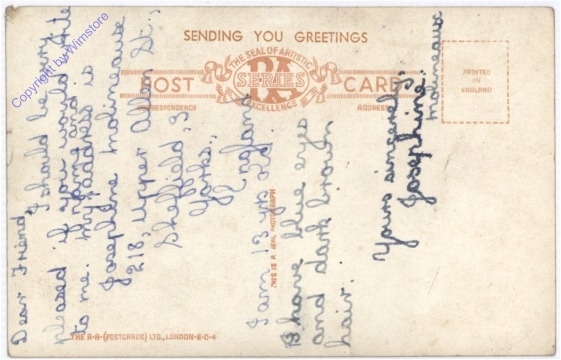 SENDING YOU GREETINGS
THE SEAL OF ARTISTIC
RA
SERIES
EXCELLENCE
POST CARD
CORRESPONDENCE
ADDRESS
PRINTED
IN
ENGLAND
THIS IS A REAL PHOTOGRAPH
THE R-A-(POSTCARDS) LTD., LONDON-E-C-4
Copyright by Wimstore
Dear Friend,
I should be very
pleased if you would write
to me. My name and address is
Josephine Molineaux
218, Upper Allen St.,
Sheffield, 3
Yorks.,
England
I am 13 yrs old
I have blue eyes
and dark brown
hair.
Yours sincerely,
Josephine.
Molineaux